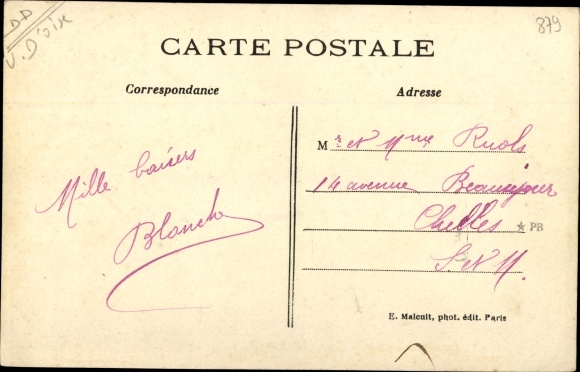 D-D
V. D'oise
879
CARTE POSTALE
Correspondance
Adresse
Mille baisers
Blanche
Mr et Mme Ruols
14 avenue Beauséjour
Chelles
★ PB
S. et M.
E. Malcuit, phot. édit. Paris